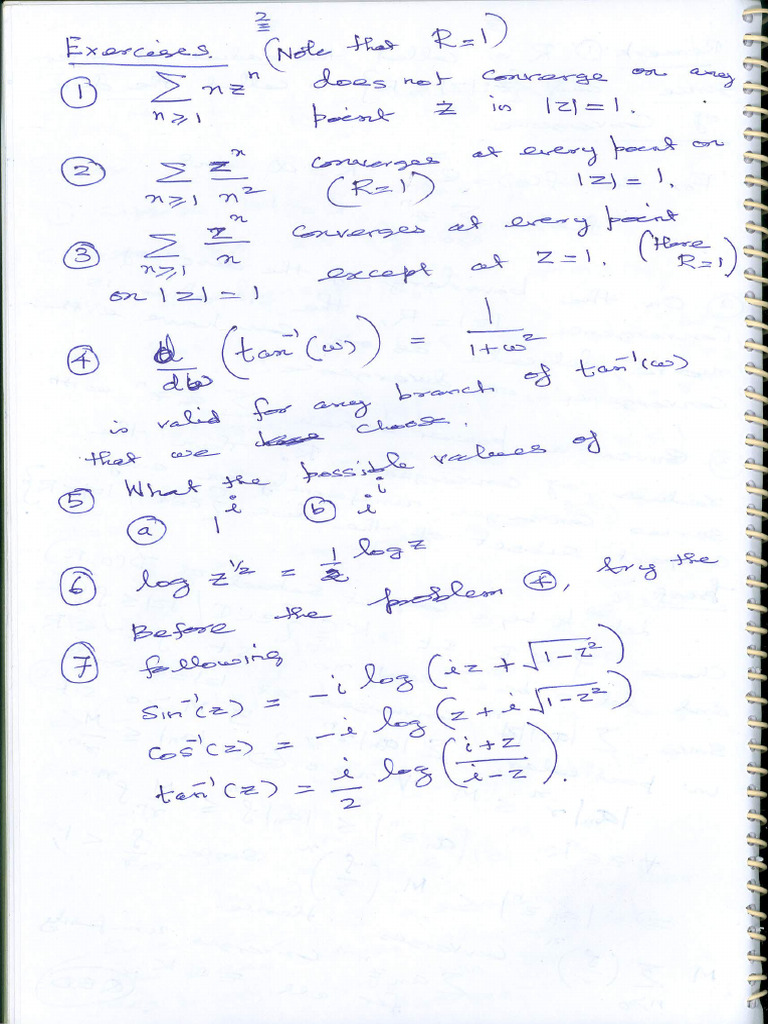 2
Exercises. (Note that R=1)
① ∑_{n≥1} n z^n does not converge on any
point z in |z|=1.
② ∑_{n≥1} z^n/n^2 converges at every point on
(R=1) |z|=1.
③ ∑_{n≥1} z^n/n converges at every point
on |z|=1 except at z=1. (Here R=1)
④ d/dω (tan^{-1}(ω)) = 1/(1+ω^2)
is valid for any branch of tan^{-1}(ω)
that we choose.
⑤ What the possible values of
ⓐ 1^i ⓑ i^i
⑥ log z^{1/2} = 1/2 log z
Before the problem ④, try the
⑦ following
sin^{-1}(z) = -i log (iz + √(1-z^2))
cos^{-1}(z) = -i log (z + i√(1-z^2))
tan^{-1}(z) = i/2 log ((i+z)/(i-z)).